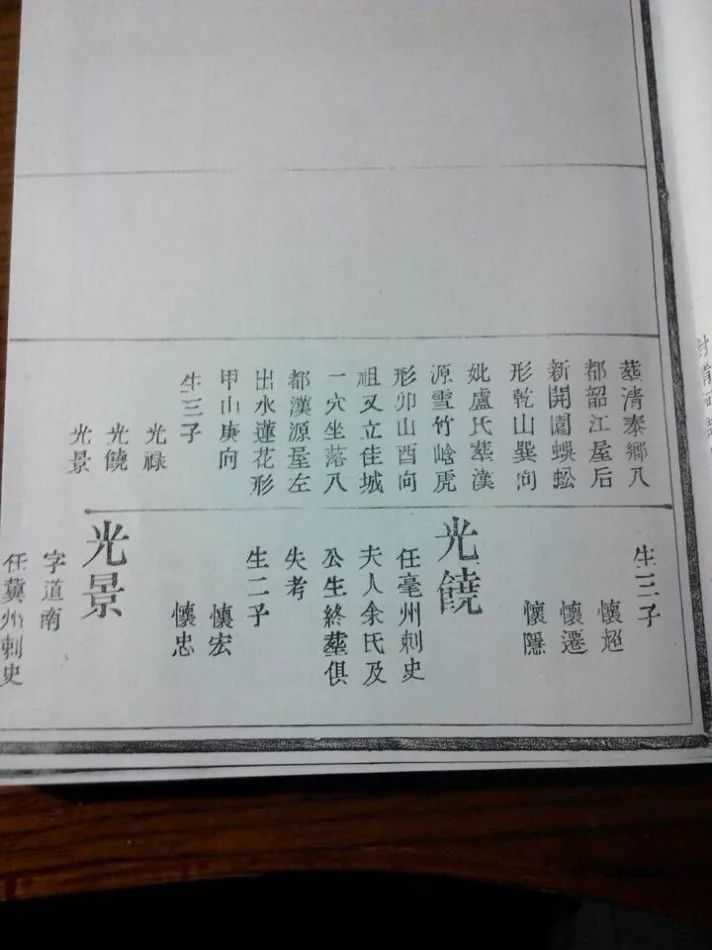 葬清泰鄉八
都韶江屋后
新開園蜈蚣
形乾山巽向
妣盧氏葬漢
源雪竹峆虎
形卯山酉向
祖又立佳城
一穴坐落八
都漢源屋左
出水蓮花形
甲山庚向
生三子
光禄
光饒
光景
生三子
懷超
懷遷
懷隱
光饒
任亳州刺史
夫人余氏及
公生終葬俱
失考
生二子
懷宏
懷忠
光景
字道南
任冀州刺史